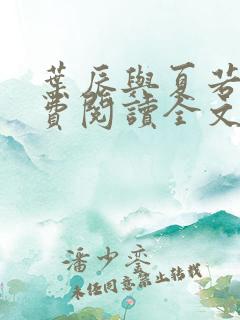 葉辰與夏若
費閱讀全文
潘少鑾
未經同意禁止轉載